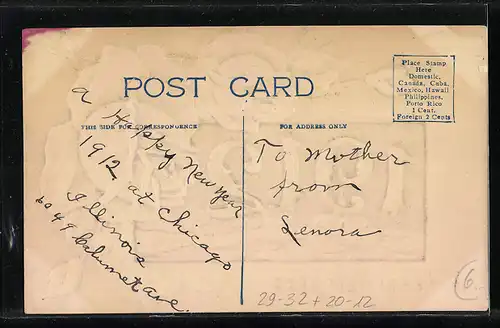 POST CARD
Place Stamp
Here
Domestic,
Canada, Cuba,
Mexico, Hawaii
Philippines,
Porto Rico
1 Cent.
Foreign 2 Cents
THIS SIDE FOR CORRESPONDENCE
a Happy New Year
1912 at Chicago
Illinois
6049 Calumet ave.
FOR ADDRESS ONLY
To Mother
from
Lenora
29-32+20-12
6.